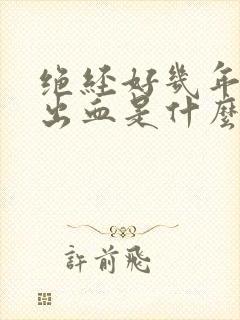 绝经好幾年
出血是什麼
許前飛